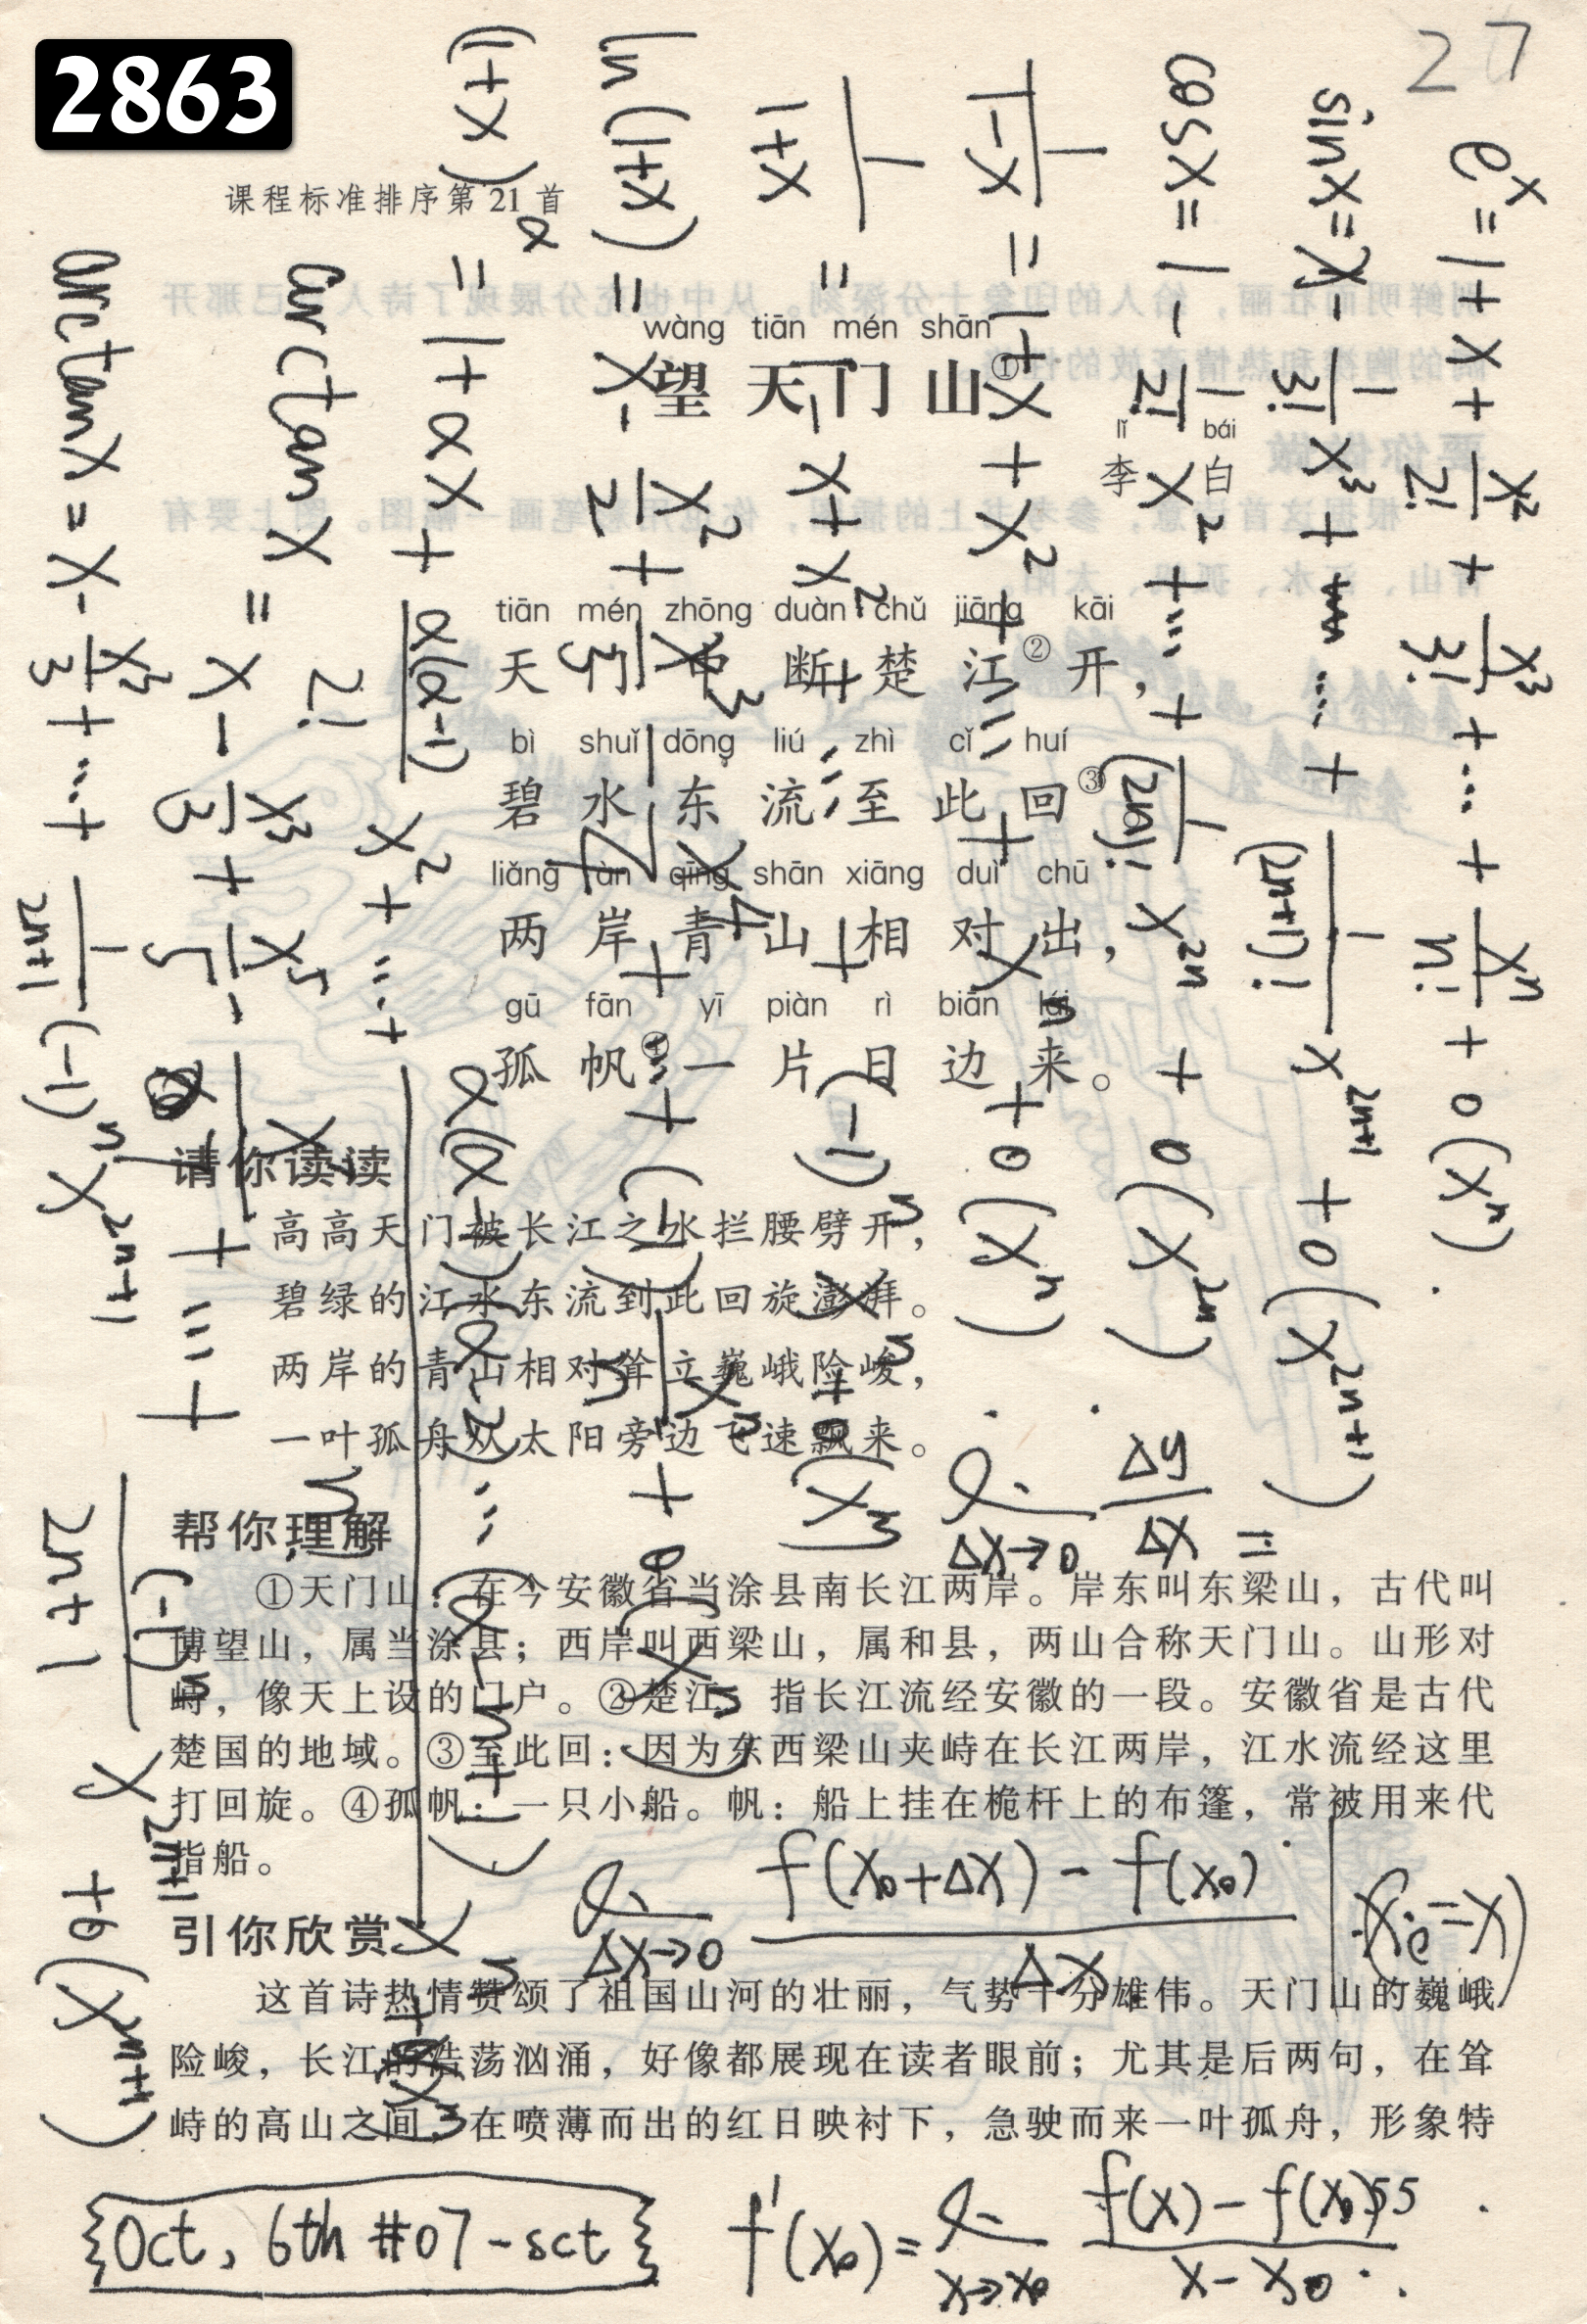 2863
27
课程标准排序第 21 首
wàng tiān mén shān
望天门山①
lǐ bái
李白
tiān mén zhōng duàn chǔ jiāng kāi
天门中断楚江②开，
bì shuǐ dōng liú zhì cǐ huí
碧水东流至此回③
liǎng àn qīng shān xiāng duì chū
两岸青山相对出，
gū fān yī piàn rì biān lái
孤帆④一片日边来。
请你读读
高高天门被长江之水拦腰劈开，
碧绿的江水东流到此回旋澎湃。
两岸的青山相对耸立巍峨险峻，
一叶孤舟从太阳旁边飞速飘来。
帮你理解
①天门山：在今安徽省当涂县南长江两岸。岸东叫东梁山，古代叫
博望山，属当涂县；西岸叫西梁山，属和县，两山合称天门山。山形对
峙，像天上设的门户。②楚江：指长江流经安徽的一段。安徽省是古代
楚国的地域。③至此回：因为东西梁山夹峙在长江两岸，江水流经这里
打回旋。④孤帆：一只小船。帆：船上挂在桅杆上的布篷，常被用来代
指船。
引你欣赏
这首诗热情赞颂了祖国山河的壮丽，气势十分雄伟。天门山的巍峨
险峻，长江的浩荡汹涌，好像都展现在读者眼前；尤其是后两句，在耸
峙的高山之间，在喷薄而出的红日映衬下，急驶而来一叶孤舟，形象特
55
e^x = 1 + x + x²/2! + x³/3! + … + xⁿ/n! + o(xⁿ).
sinx = x - 1/3! x³ + … + 1/(2n+1)! x^(2n+1) + o(x^(2n+1))
cosx = 1 - 1/2! x² + … + 1/(2n)! x^(2n) + o(x^(2n))
1/(1-x) = 1 + x + x² + … + xⁿ + o(xⁿ)
1/(1+x) = 1 - x + x² + … + (-1)ⁿ xⁿ + o(xⁿ)
ln(1+x) = x - x²/2 + x³/3 - x⁴/4 + … + (-1) xⁿ/n + o(xⁿ)
(1+x)^α = 1 + αx + α(α-1)/2! x² + … + α(α-1)(α-2)…(α-n+1)/n! xⁿ + o(xⁿ)
arctan x = x - x³/3 + x⁵/5 - … + (-1)ⁿ/(2n+1) x^(2n+1) + o(x^(2n+1))
arctanx = x - x³/3 + … + 1/(2n+1) (-1)ⁿ x^(2n+1)
Δx→0 Δy/Δx =
Δx→0 f(x₀+Δx) - f(x₀) / Δx
(x = x₀)
Oct, 6th #07-sct
f'(x₀) = x→x₀ f(x) - f(x₀) / x - x₀